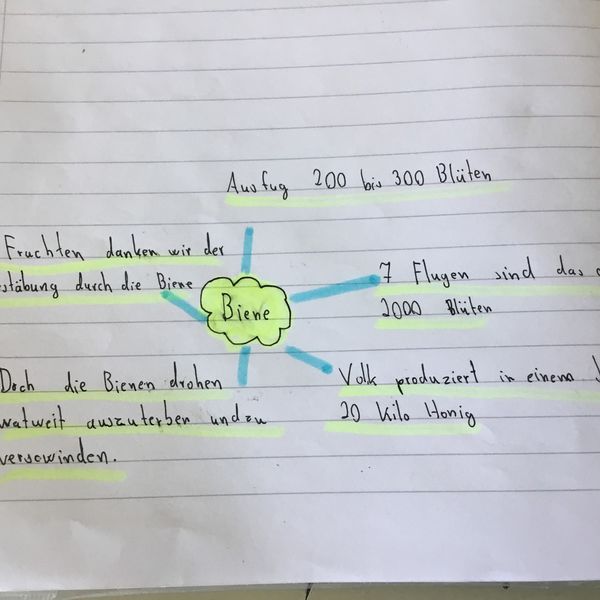 Ausfug 200 bis 300 Blüten
Fruchten danken wir der
stäbung durch die Biene
Biene
7 Flugen sind das
2000 Blüten
Doch die Bienen drohen
watweit auszuterben undzu
versowinden.
Volk produziert in einem
20 Kilo Honig